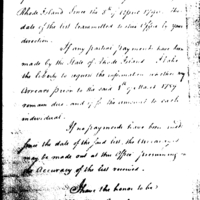 Rhode Island since the 5th of April 1790.
the date of the last transmitted to this Office by your
direction.
If any further payments have been
made by the State of Rhode Island. I take
the liberty to request the information exhibiting
Arrears prior to the 4th of March 1789
remains due, and if so the amount to each
individual.
If no payments have been made
since the date of the last, the
may be made out at this Office presuming
the Accuracy of the last received.
I have the honor to be